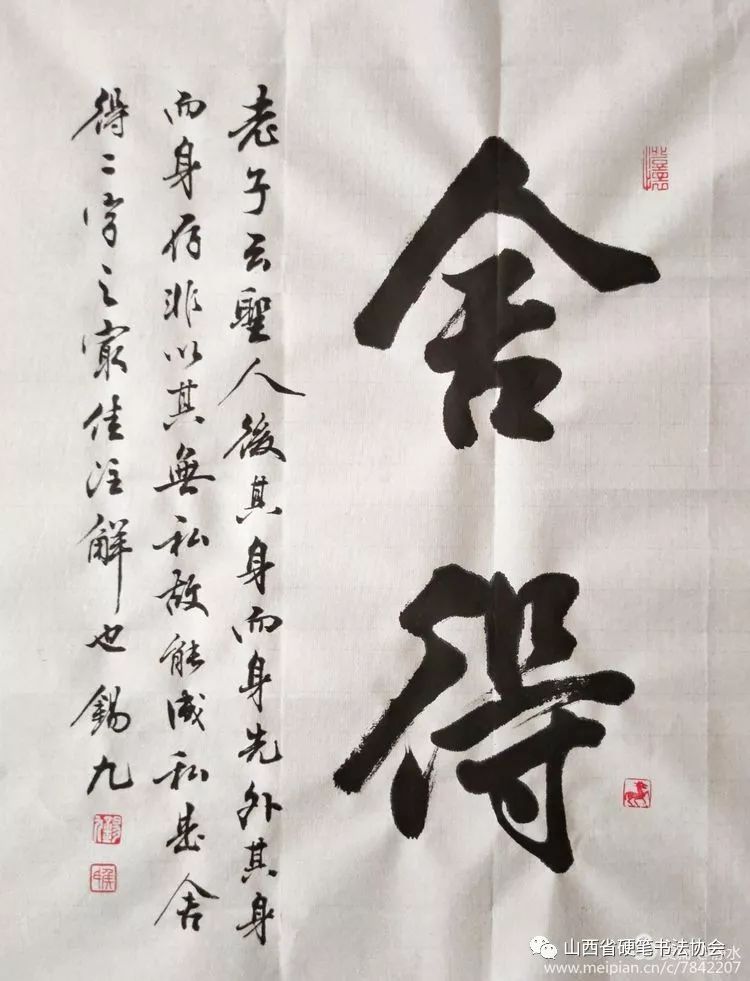 舍得
老子云聖人後其身而身先外其身
而身存非以其無私故能成私是舍
得二字之最佳注解也錫九
山西省硬笔书法协会
www.meipian.cn/c/7842207